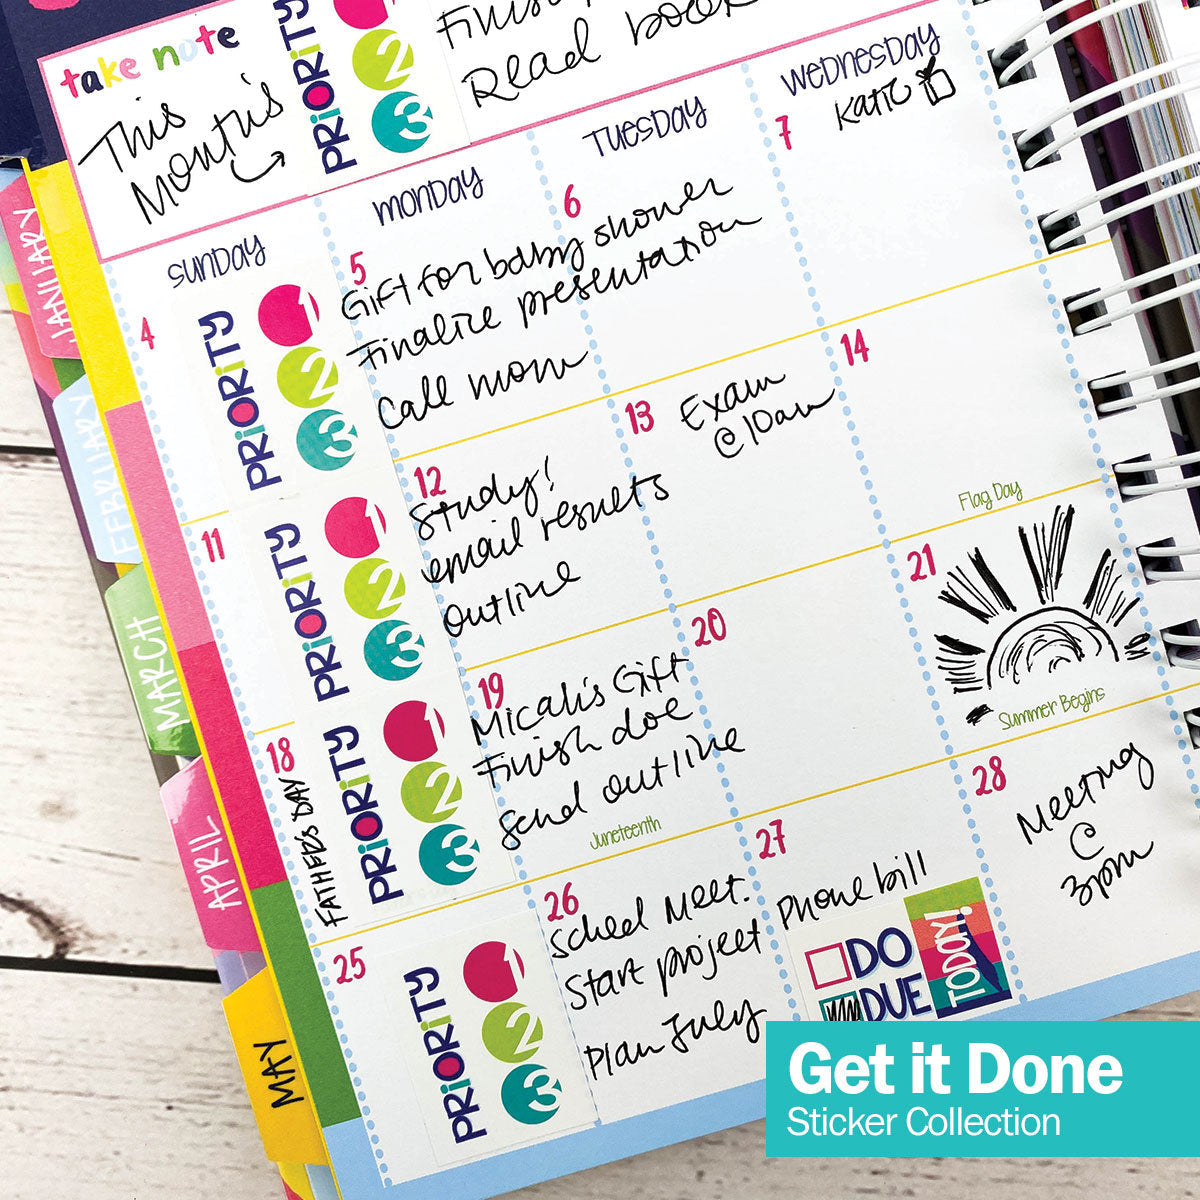 take note
This
Month's
PRiORiTY
1
2
3
Finish
Read book
SUNDAY
MONDAY
TUESDAY
WEDNESDAY
4
PRiORiTY
1
2
3
5
Gift for baby shower
Finalize presentation
Call mom
6
7
Katie
11
PRiORiTY
1
2
3
12
Study!
email results
outline
13
Exam
@ 10am
14
Flag Day
18
FATHERS DAY
PRiORiTY
1
2
3
19
Micah's Gift
Finish doc
Send outline
Juneteenth
20
21
Summer Begins
25
PRiORiTY
1
2
3
26
Sched Meet.
Start project
Plan July
27
Phone bill
DO
DUE
TODAY!
28
Meeting
@
3pm
JANUARY
FEBRUARY
MARCH
APRIL
MAY
Get it Done
Sticker Collection